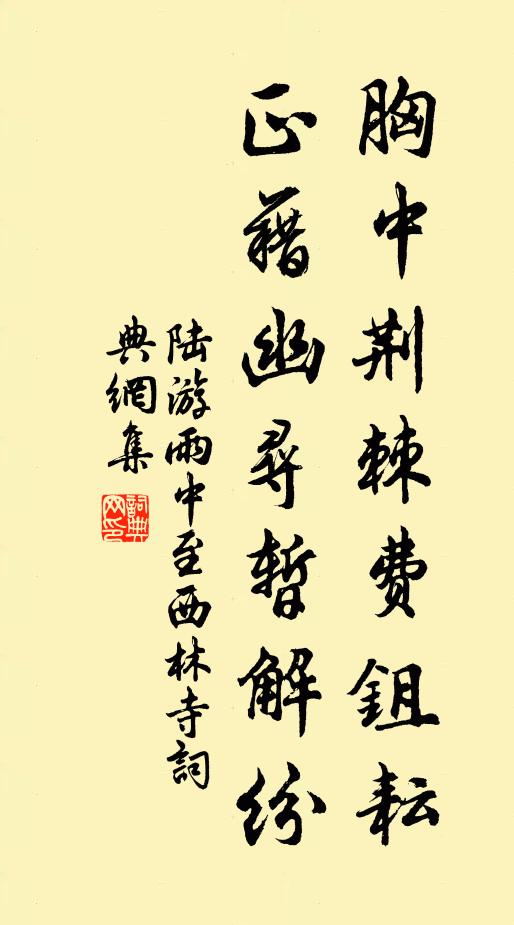 胸中荆棘费鉏耘
正藉幽尋暫解紛
陆游雨中至西林寺詞
典網集
詞典網印